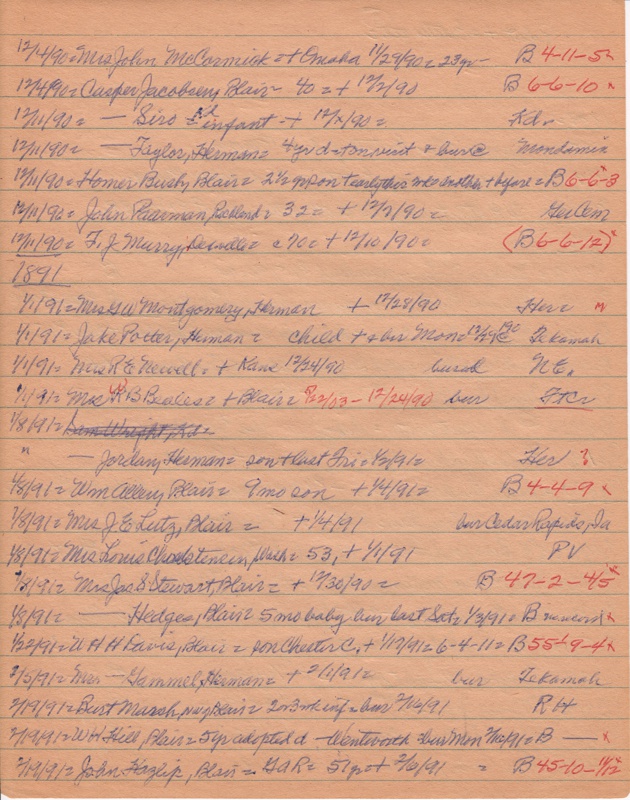 12/4/90 = Mrs John McCormick = + Omaha 11/29/90 = 23 yr - B 4-11-5 x
12/4/90 = Casper Jacobsen, Blair - 40 = + 12/2/90 B 6-6-10 x
12/11/90 = — Siro = infant + 12/x/90 = Kd.
12/11/90 = — Taylor, Herman = 4 yr d + on visit + bur @ Mondamin
12/11/90 = Homer Busby Blair = 2 1/2 yr son + early this wk another + before = B 6-6-8
12/11/90 = John Paarman, Richland = 32 = + 12/2/90 = Ger Cem
12/11/90 = F. J. Murry, Desoto = c 70 = + 12/10/90 = (B 6-6-12) x
1891
1/1/91 = Mrs GW Montgomery, Herman + 12/28/90 Her =
1/1/91 = Jake Porter, Herman = child + & bur Mon = 12/29/90 @ Tekamah
1/1/91 = Mrs R E Newell = + Kans 12/24/90 burial N.E.
1/1/91 = Mrs K B Beales = + Blair = 8/22/03 - 12/24/90 bur
1/8/91 = Sam Wright, Kd.
" — Jordan, Herman = son + last Fri = 1/2/91 = Her ?
1/8/91 = Wm Allen, Blair = 9 mo son + 1/4/91 = B 4-4-9 x
1/8/91 = Mrs J E Lutz, Blair = + 1/4/91 bur Cedar Rapids, Ia
1/8/91 = Mrs Louis = 53, + 1/1/91 PV
1/8/91 = Mrs Jas S Stewart, Blair = + 12/30/90 = B 47-2-4/5 x
1/8/91 = — Hedges, Blair = 5 mo baby bur last Sat = 1/3/91 = B x
1/22/91 = W H H Davis, Blair = son Chester C. + 1/17/91 = 6-4-11 = B 55-9-4 x
2/5/91 = Mrs — Gammel, Herman = + 2/1/91 = bur Tekamah
2/19/91 = Burt Marsh, Blair = 2 or 3 wk inf = bur 2/16/91 RH
2/19/91 = W H Hill, Blair = 5 yr adopted d - Wentworth bur Mon 2/16/91 = B — x
2/19/91 = John Hazlip, Blair = GAR = 51 yr + 2/6/91 = B 45-10-11/12 x